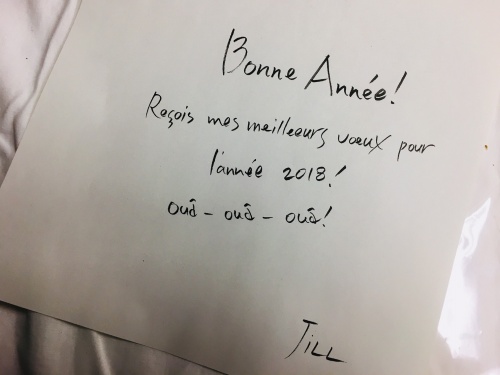 Bonne Année!
Reçois mes meilleurs vœux pour
l'année 2018!
ouâ - ouâ - ouâ!
JILL